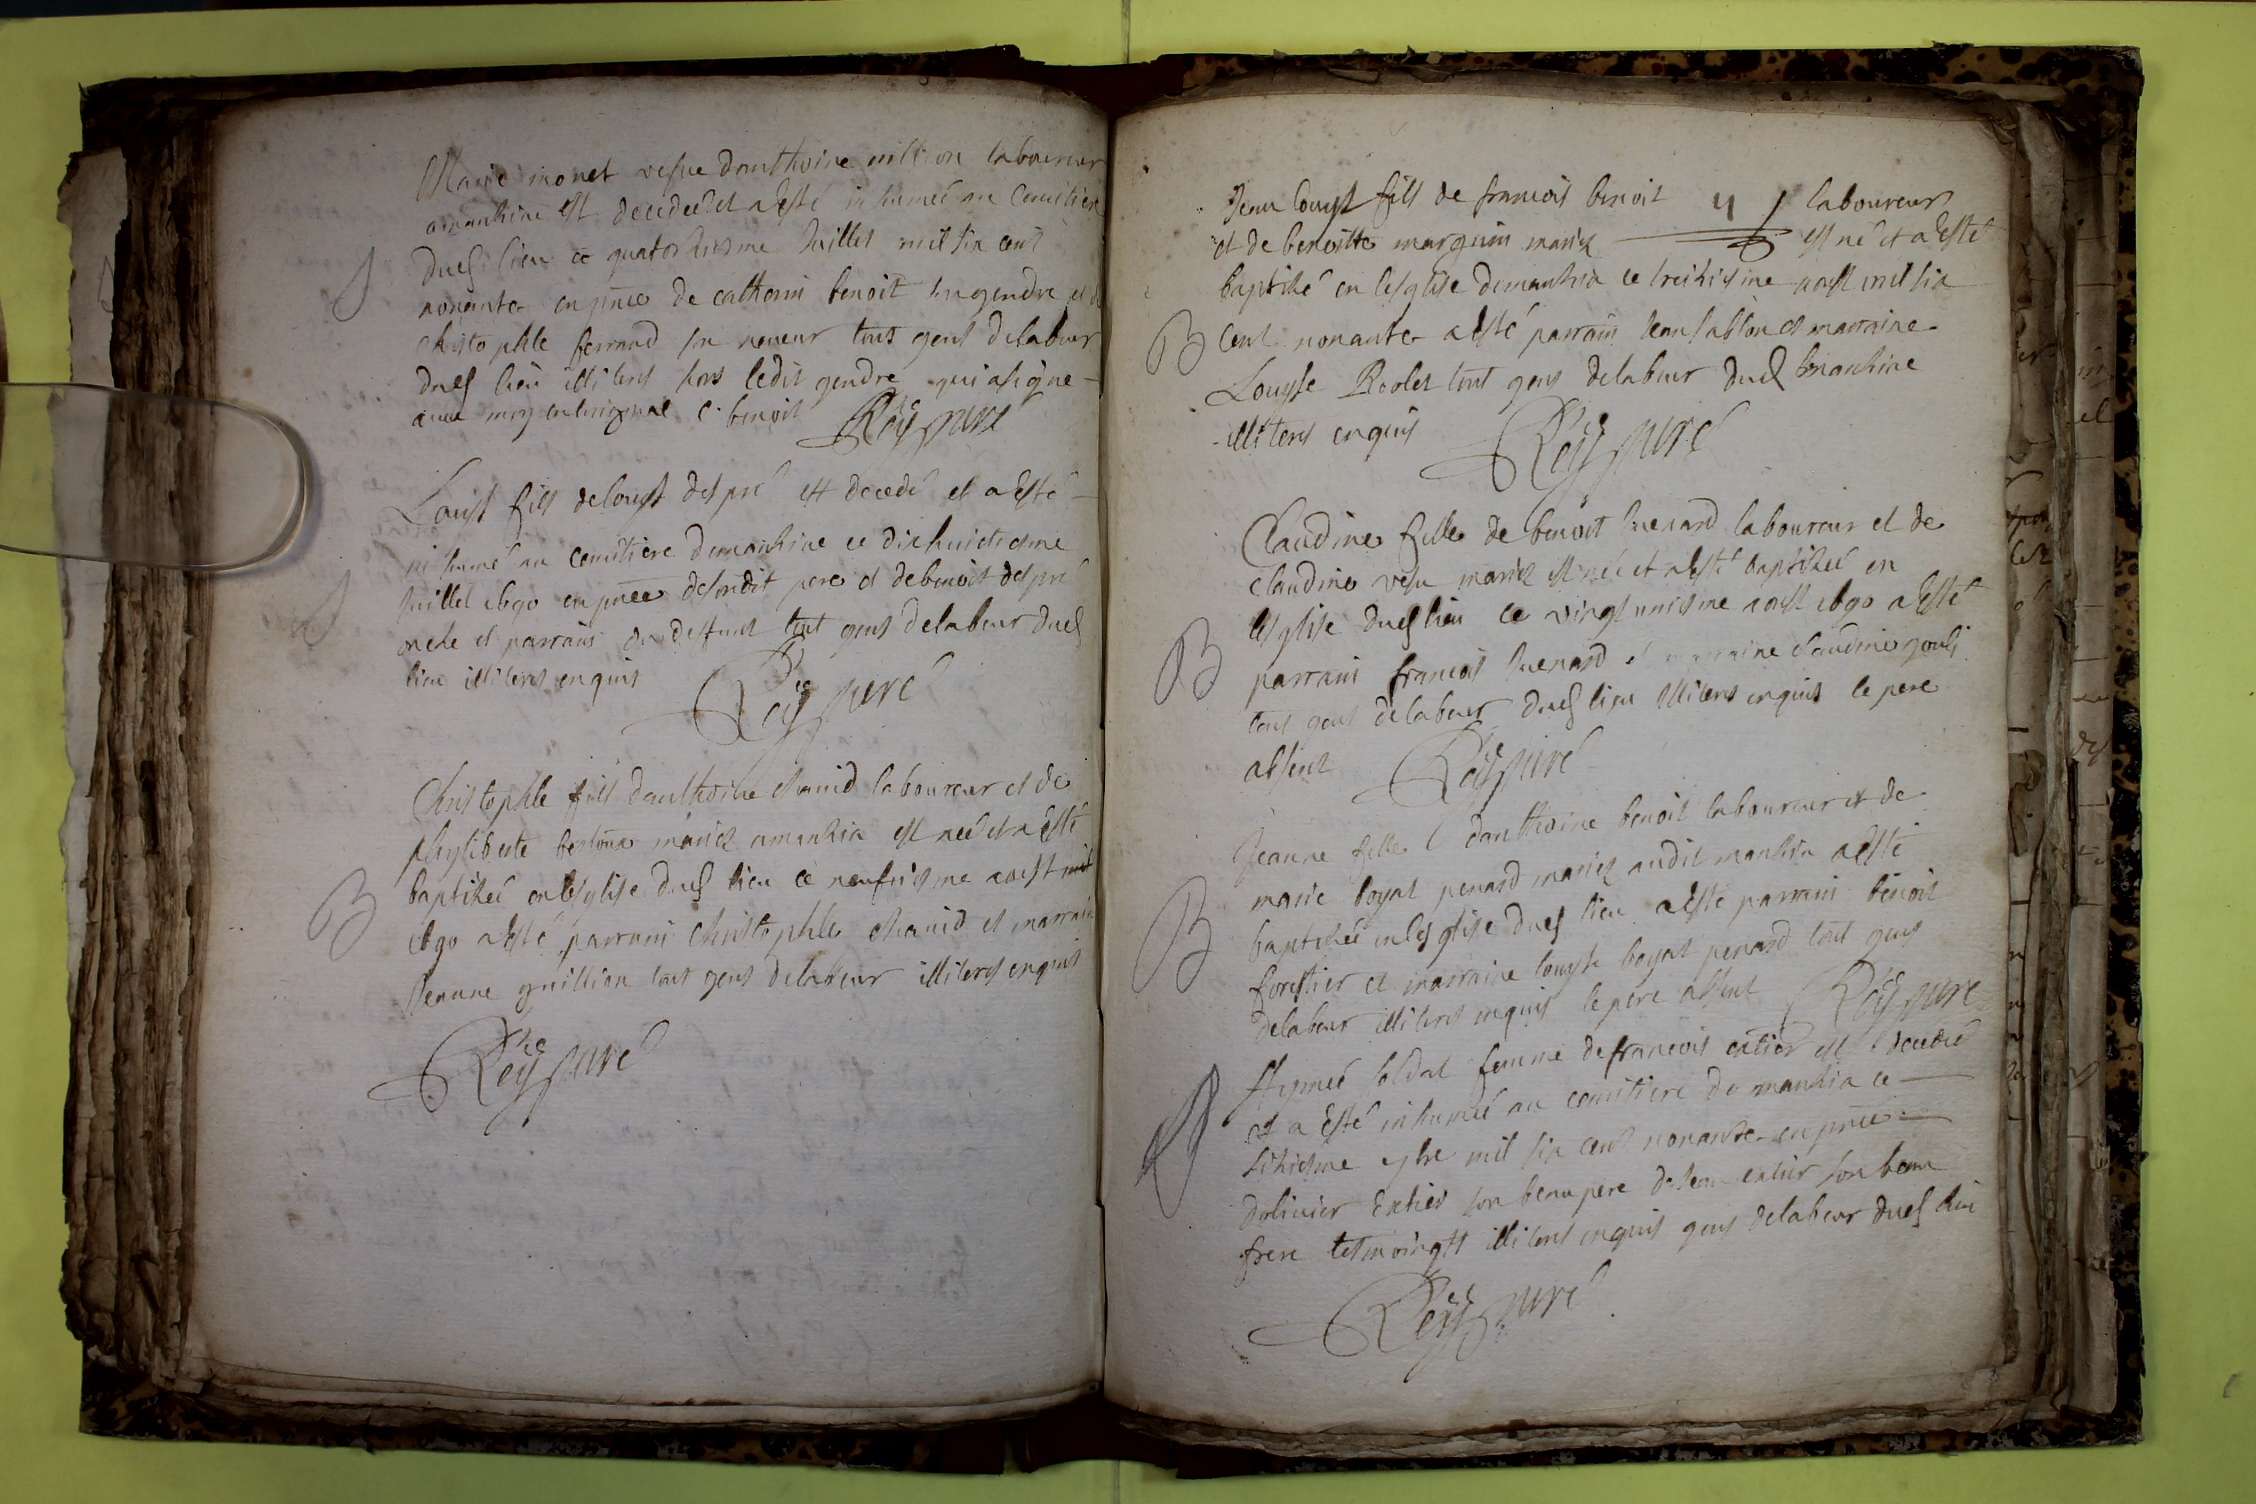 Marie monet vefue danthoine million laboureur
amanzia est decedeé et a esté inhumeé au cemitiere
dud lieu ce quatorziesme Juillet mil six cent
nonante en pnce de catherin benoit son gendre et de
christophle ferrand son neueur tous gens delabeur
dud lieu illiteres hors ledit gendre qui a signe
auec moy en loriginal C. benoit
Rey curé
Louis fils de louis despré est decedé et a esté
inhumé au cemitiere demanzia ce dixhuictiesme
Juillet 1690 en pnce desondit pere et de benoit despré
oncle et parrain du deffunt tout gens delabeur dud
lieu illiteres enquis
Rey curé
Christophle fils danthoine chanid laboureur et de
phyliberte mariez amanzia est neé et a esté
baptizeé en lesglise dud lieu ce neufuiesme aoust
1690 a esté parrain Christophle chanid et marraine
Jeanne guillion tout gens delabeur illiteres enquis
Rey curé
B
B
Jean louys fils de francois benoit laboureur
et de benoitte marguin mariez est né et a esté
baptizé en lesglise demanzia ce treiziesme aoust mil six
cent nonante a esté parrain Jean et marraine
Louyse Rolet tout gens delabeur dud manzia
illiteres enquis
Rey curé
Claudine fille de benoit laboureur et de
claudine mariez est neé et a esté baptizeé en
lesglise dud lieu ce vingt uniesme aoust 1690 a esté
B
parrain francois et marraine claudine
tous gens delabeur dud lieu illiteres enquis le pere
absent
Rey curé
Jeanne fille danthoine benoit laboureur et de
marie boyat penard mariez audit manzia a esté
B
baptizeé en lesglise dud lieu a esté parrain benoit
forestier et marraine louyse boyat penard tout gens
delabeur illiteres enquis le pere absent
Rey curé
Aymeé soldat femme de francois est decedeé
et a esté inhumeé au cemitiere de manzia ce
7bre mil six cent nonante en pnce
dolivier son beaupere de Jean son beau
frere tesmoingts illiteres enquis gens delabeur dud lieu
Rey curé